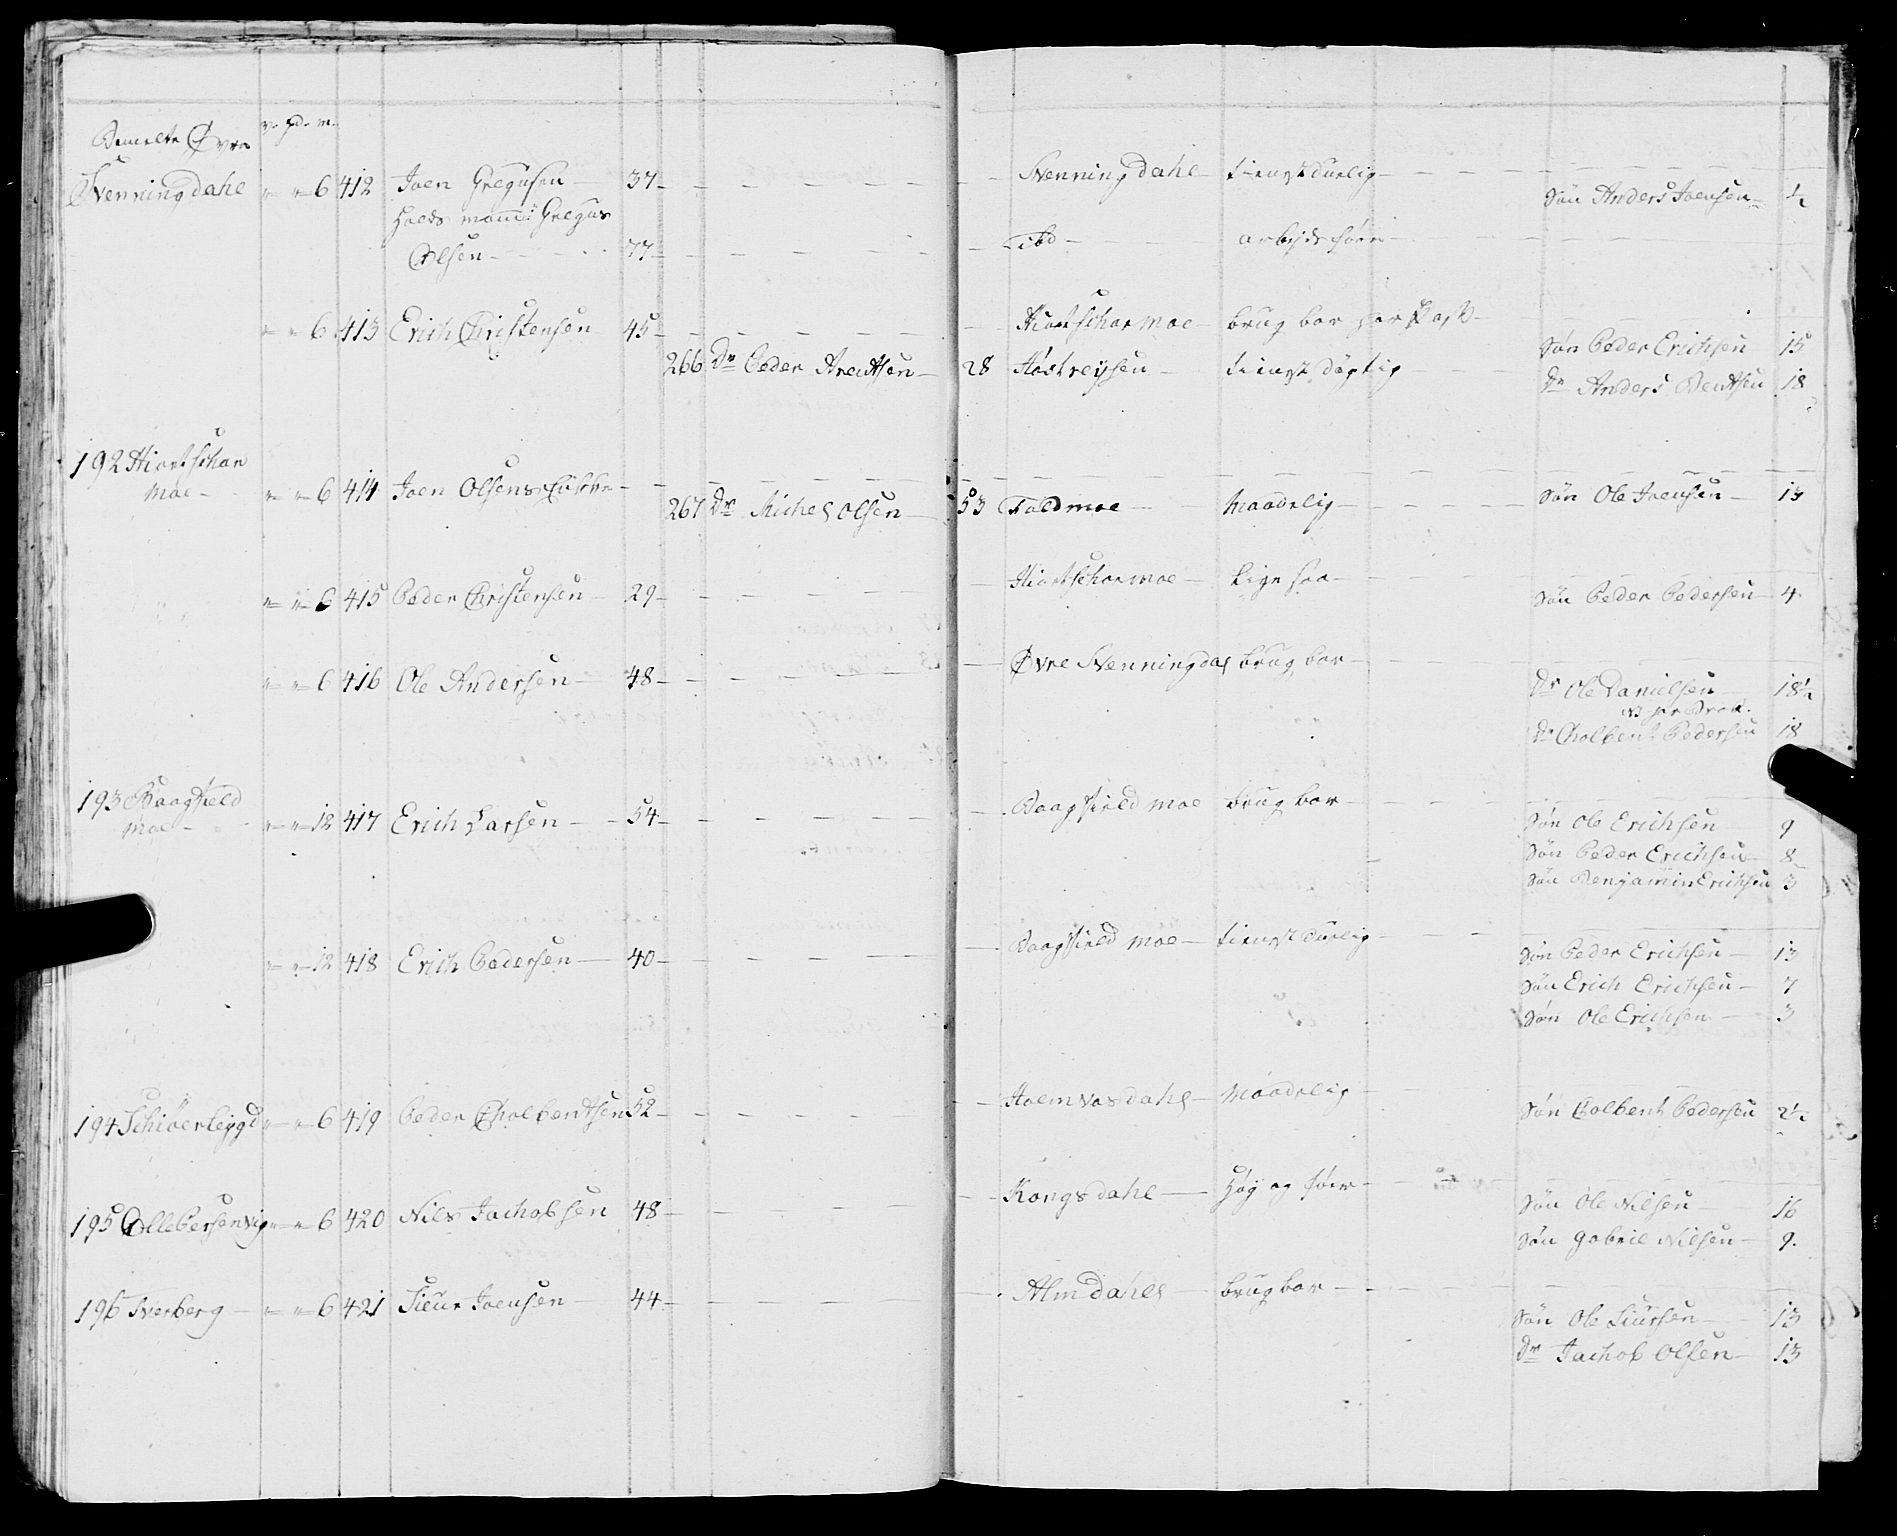 v. pd. m.
Bemelte Øvre
Svenningdahl " " 6 412 Joen Gregusen 37 Svenningdahl tienstdüelig
Søn Anders Joensen ½
Gregus
Olsen 77 ibd arbejdsfør
" " 6 413 Erich Christensen 45 Hiortscharmoe brugbar
Søn Peder Erichsen 15
266 Dr Peder Arentsen 28 tienstdygtig
Dr Anders Bentsen 18
192 Hiortschar
moe " " 6 414 Joen Olsens Enche
267 Dr Michel Olsen 53 Foldmoe Maadelig Søn Ole Joensen 13
" " 6 415 Peder Christensen 29 Hiortscharmoe ligesaa
Søn Peder Pedersen 4
" " 6 416 Ole Andersen 48 Øvre Svenningdal brugbar
Dr Ole Danielsen 18½
Dr Pedersen 18
193 Baagfield
moe " " 12 417 Erich Larsen 54 Baagfield moe brugbar
Søn Ole Erichsen 9
Søn Peder Erichsen 8
Søn Benjamin Erichsen 3
" " 12 418 Erich Pedersen 40 Baagfield moe tienstdüelig
Søn Peder Erichsen 13
Søn Erich Erichsen 7
Søn Ole Erichsen 3
194 Schiöerleygd " " 6 419 Peder Tholbentsen 52 Holmvasdahl Maadelig
Søn Tolbent Pedersen 2½
195 Ollepersenvig " " 6 420 Nils Jachobsen 48 Kongsdahl høy og før
Søn Ole Nilsen 16
Søn Gabriel Nilsen 9
196 Sverberg " " 6 421 Sieur Joensen 44 Almdahl brugbar
Søn Ole Siursen 13
Dr Jachob Olsen 13